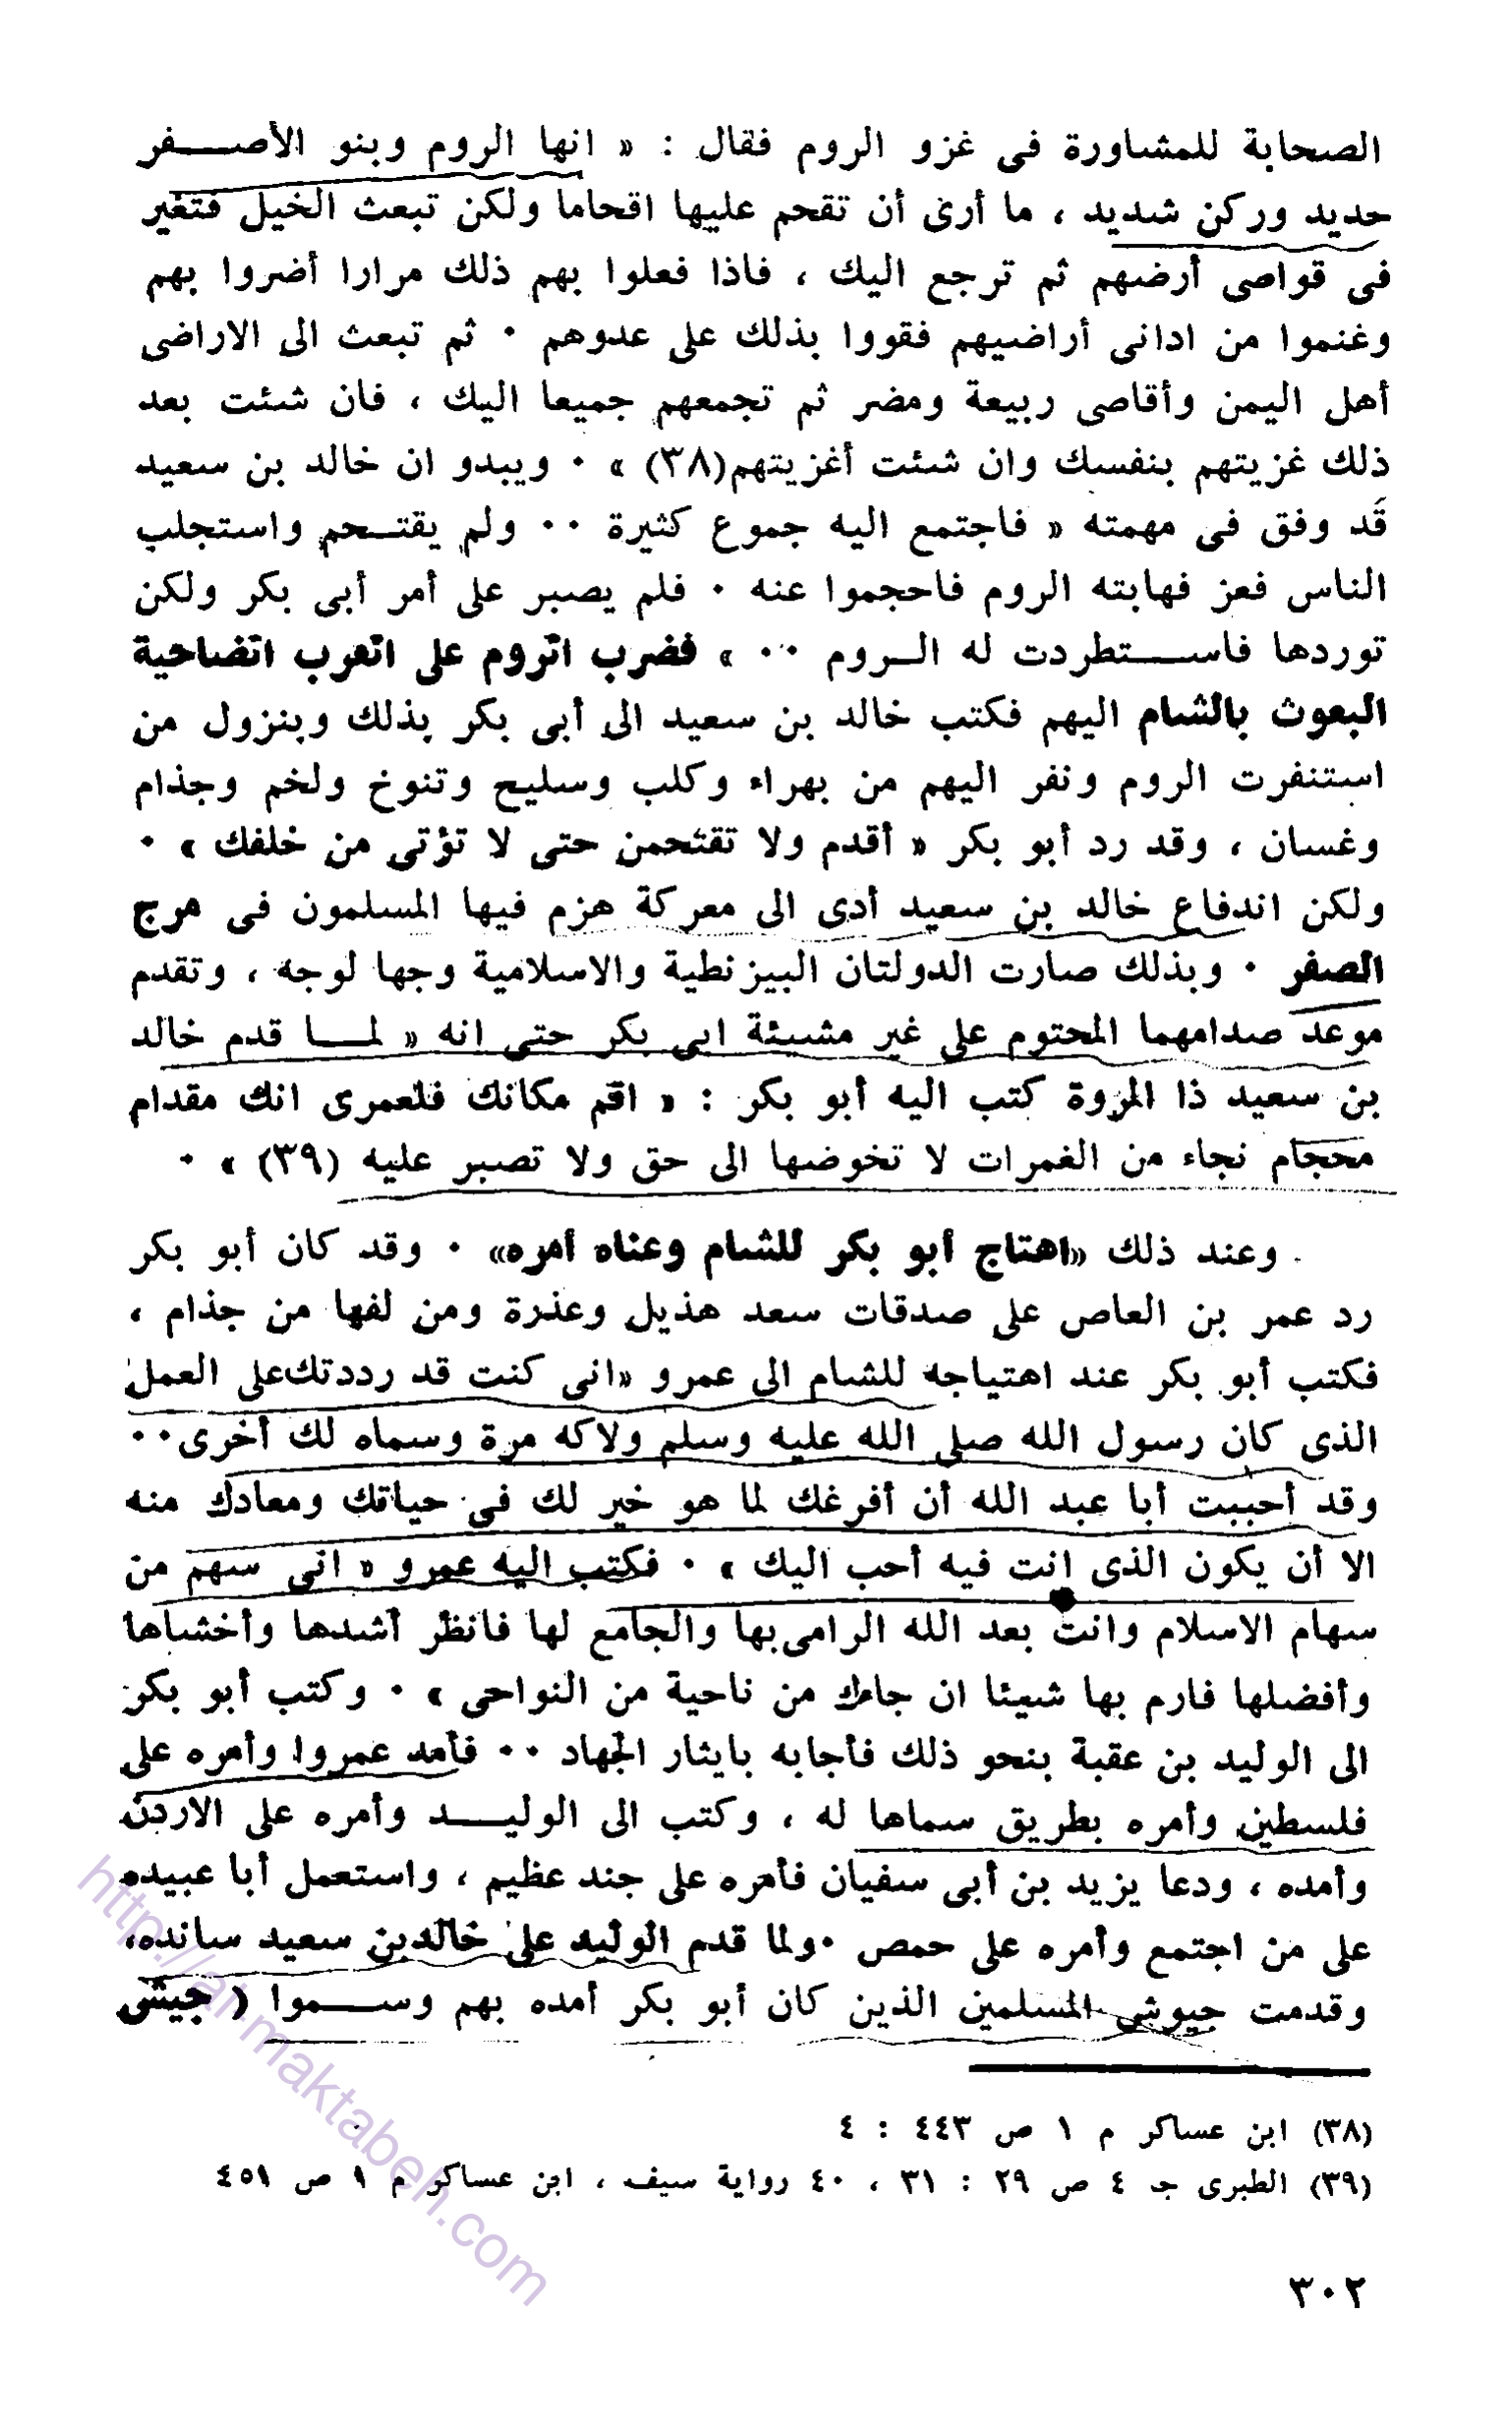 الصحابة للمشاورة فى غزو الروم فقال : « انها الروم وبنو الأصـــفر
حديد وركن شديد ، ما أرى أن تقحم عليها اقحاما ولكن تبعث الخيل فتغير
فى قواصى أرضهم ثم ترجع اليك ، فاذا فعلوا بهم ذلك مرارا أضروا بهم
وغنموا من ادانى أراضيهم فقووا بذلك على عدوهم ٠ ثم تبعث الى الاراضى
أهل اليمن وأقاصى ربيعة ومضر ثم تجمعهم جميعا اليك ، فان شئت بعد
ذلك غزيتهم بنفسك وان شئت أغزيتهم(٣٨) » ٠ ويبدو ان خالد بن سعيد
قد وفق فى مهمته « فاجتمع اليه جموع كثيرة ٠٠ ولم يقتـحم واستجلب
الناس فعز فهابته الروم فاحجموا عنه ٠ فلم يصبر على أمر أبى بكر ولكن
توردها فاســـتطردت له الـروم ٠٠ » فضرب الروم على العرب الضاحية
البعوث بالشام اليهم فكتب خالد بن سعيد الى أبى بكر بذلك وبنزول من
استنفرت الروم ونفر اليهم من بهراء وكلب وسليح وتنوخ ولخم وجذام
وغسان ، وقد رد أبو بكر « أقدم ولا تقتحمن حتى لا تؤتى من خلفك » ٠
ولكن اندفاع خالد بن سعيد أدى الى معركة هزم فيها المسلمون فى مرج
الصفر ٠ وبذلك صارت الدولتان البيزنطية والاسلامية وجها لوجه ، وتقدم
موعد صدامهما المحتوم على غير مشيئة ابى بكر حتى انه « لمـــا قدم خالد
بن سعيد ذا المروة كتب اليه أبو بكر : « اقم مكانك فلعمرى انك مقدام
محجام نجاء من الغمرات لا تخوضها الى حق ولا تصبر عليه (٣٩) » ٠
وعند ذلك «اهتاج أبو بكر للشام وعناه أمره» ٠ وقد كان أبو بكر
رد عمر بن العاص على صدقات سعد هذيل وعذرة ومن لفها من جذام ،
فكتب أبو بكر عند اهتياجه للشام الى عمرو «انى كنت قد رددتك على العمل
الذى كان رسول الله صلى الله عليه وسلم ولاكه مرة وسماه لك أخرى٠٠
وقد أحببت أبا عبد الله أن أفرغك لما هو خير لك فى حياتك ومعادك منه
الا أن يكون الذى انت فيه أحب اليك » ٠ فكتب اليه عمرو « انى سهم من
سهام الاسلام وانت بعد الله الرامى بها والجامع لها فانظر أشدها وأخشاها
وأفضلها فارم بها شيئا ان جاءك من ناحية من النواحى » ٠ وكتب أبو بكر
الى الوليد بن عقبة بنحو ذلك فأجابه بايثار الجهاد ٠٠ فأمد عمروا وأمره على
فلسطين وأمره بطريق سماها له ، وكتب الى الوليـــد وأمره على الاردن
وأمده ، ودعا يزيد بن أبى سفيان فأمره على جند عظيم ، واستعمل أبا عبيده
على من اجتمع وأمره على حمص ٠ولما قدم الوليد على خالد بن سعيد سانده،
وقدمت جيوش المسلمين الذين كان أبو بكر أمده بهم وســـموا ( جيش
(٣٨) ابن عساكر م ١ ص ٤٤٣ : ٤
(٣٩) الطبرى جـ ٤ ص ٢٩ : ٣١ ، ٤٠ رواية سيف ، ابن عساكر م ١ ص ٤٥١
٣٠٢
http://al-maktabeh.com